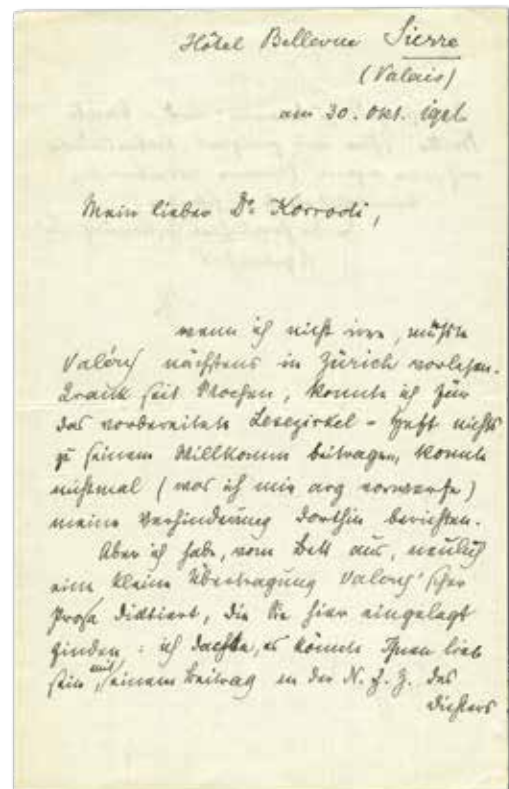 Hôtel Bellevue Sierre
(Valais)
am 30. Okt. 1926.
Mein lieber Dr Korrodi,
wenn ich nicht irre, müßte
Valéry nächstens in Zürich vorlesen.
Krank seit Wochen, konnte ich für
das vorbereitete Lesezirkel-Heft nichts
zu seinem Willkomm beitragen, konnte
nichtmal (was ich mir arg vorwerfe)
meine Verhinderung dorthin berichten.
Aber ich habe, vom Bett aus, neulich
eine kleine Übertragung Valéry'scher
Prosa diktiert, die Sie hier eingelegt
finden: ich dachte, es könnte Ihnen lieb
sein, mit seinem Beitrag in der N. Z. Z. des
Dichters